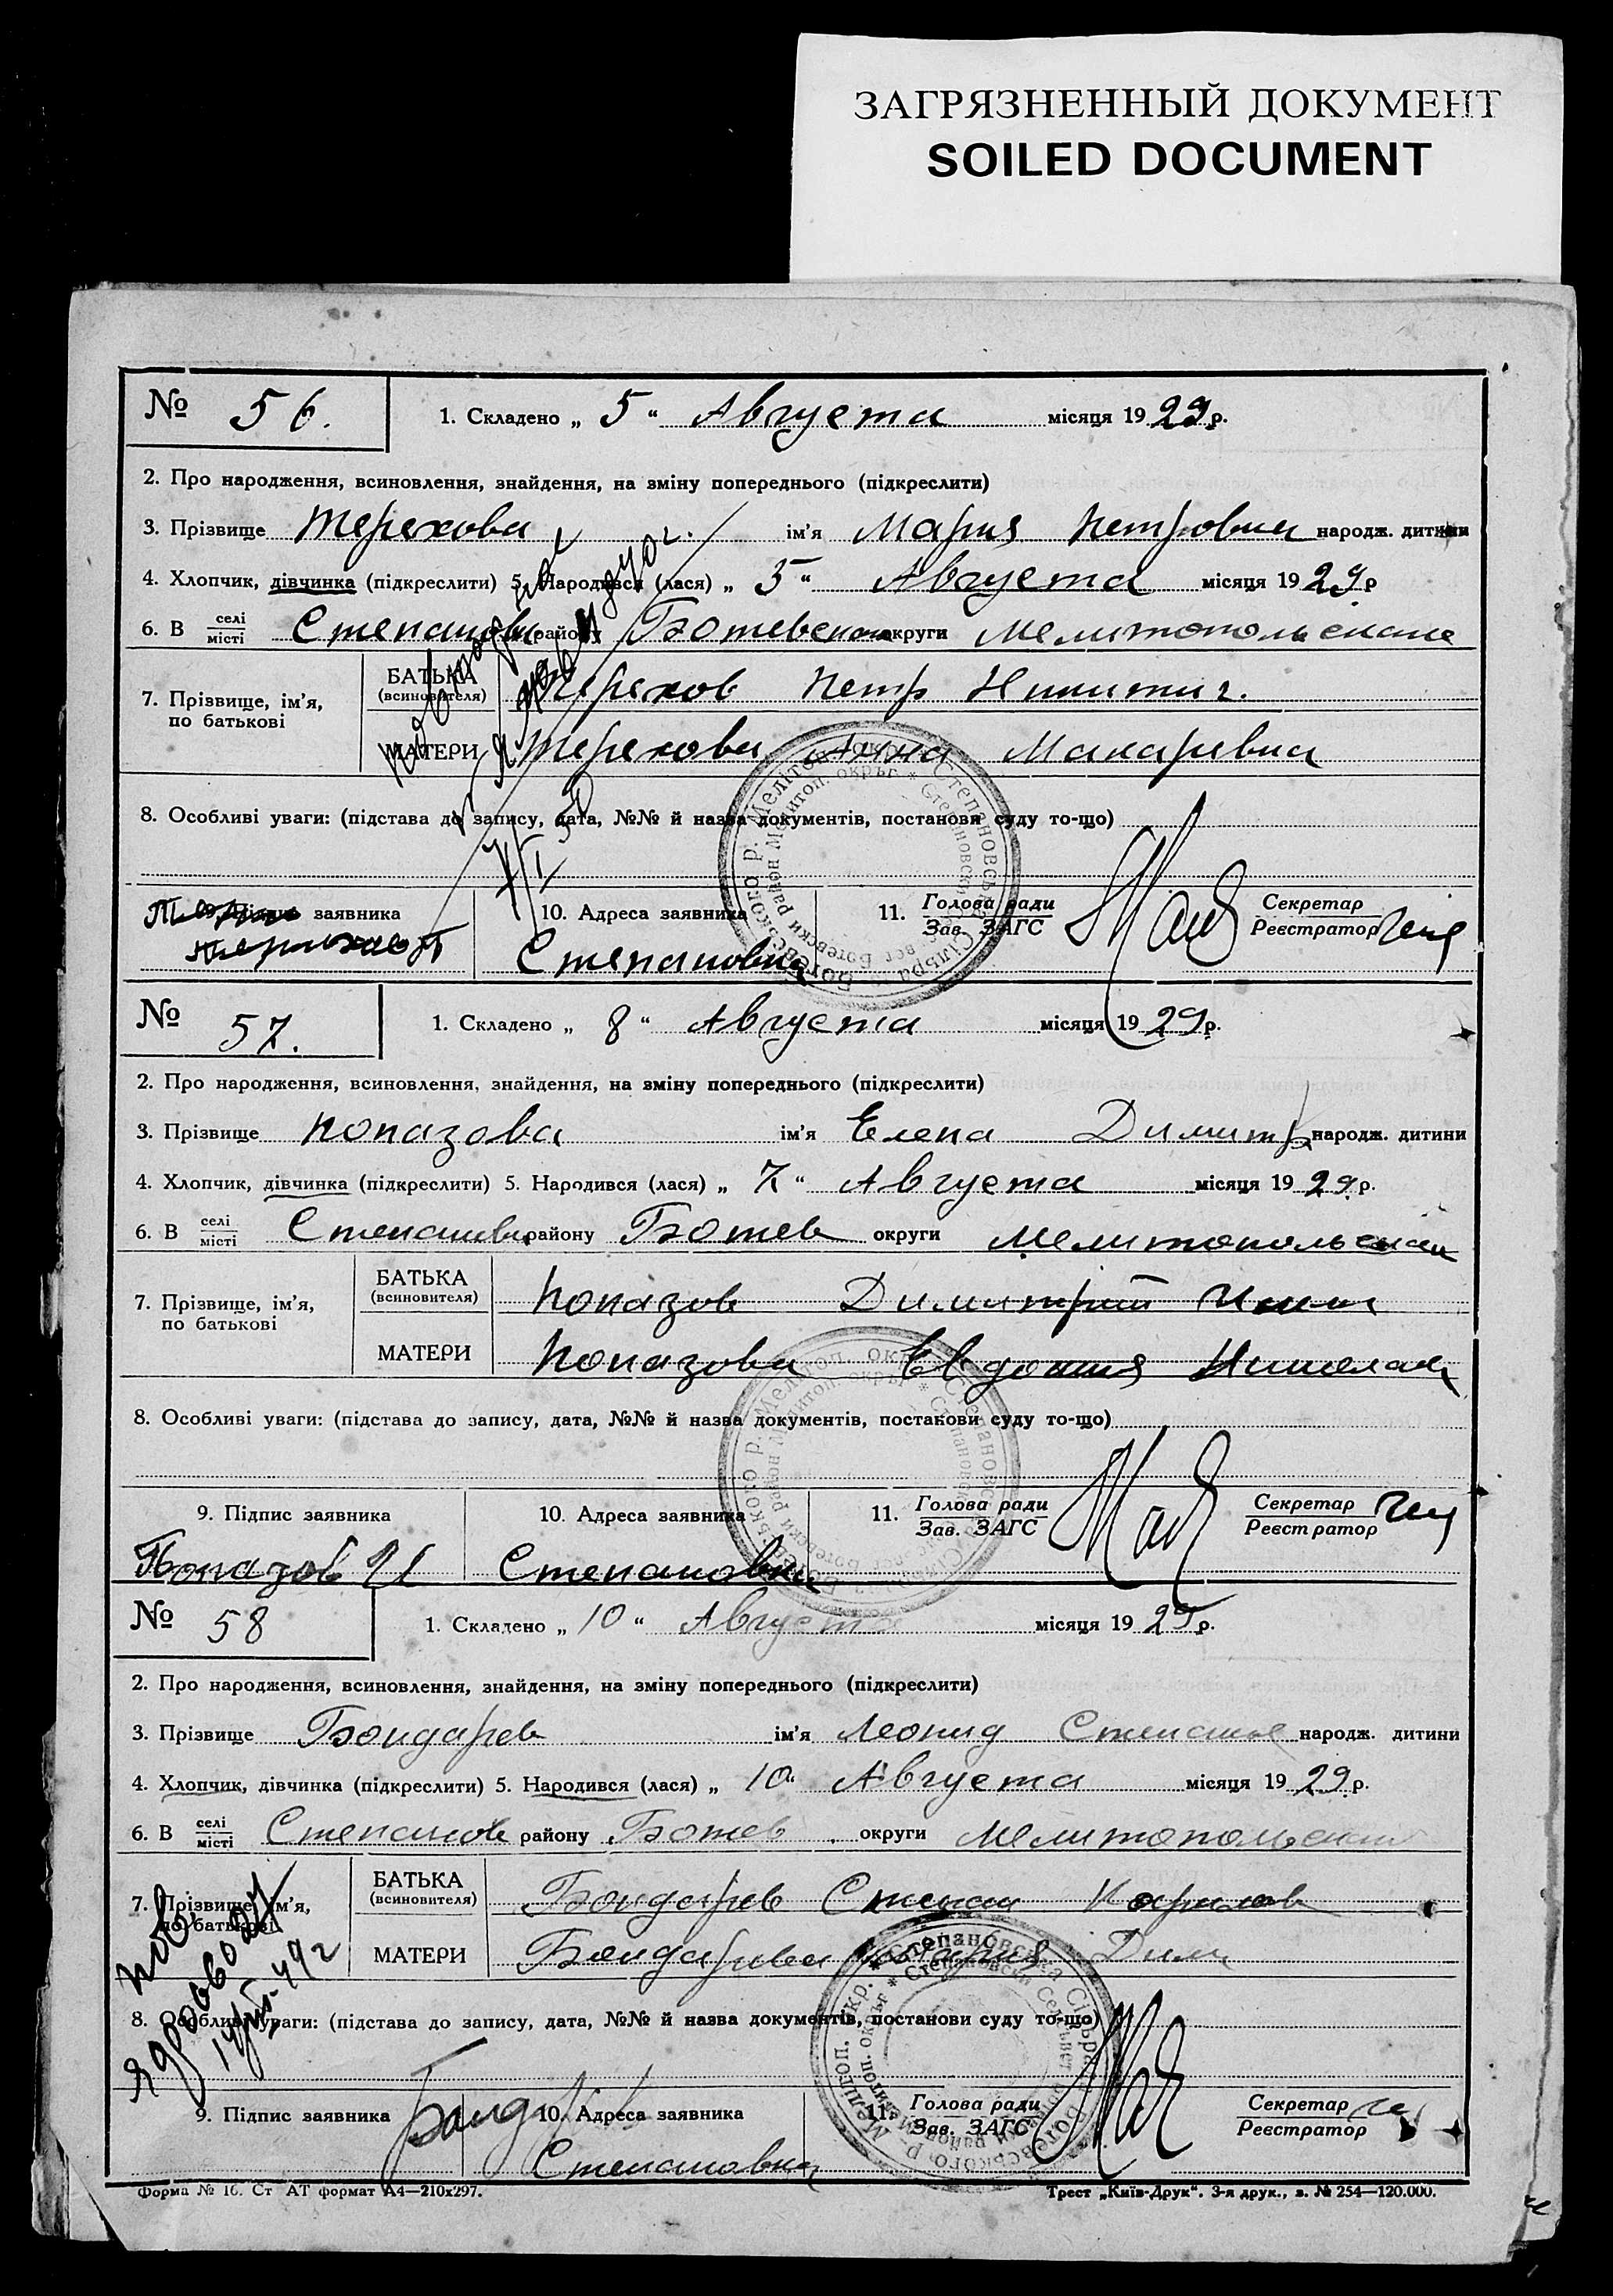 ЗАГРЯЗНЕННЫЙ ДОКУМЕНТ
SOILED DOCUMENT
№ 56. 1. Складено „ 5 “ Августа місяця 1929 р.
2. Про народження, всиновлення, знайдення, на зміну попереднього (підкреслити)
3. Прізвище Терехова ім'я Мария Петровна народж. дитини
4. Хлопчик, дівчинка (підкреслити) 5. Народився (лася) „ 5 “ Августа місяця 1929 р
6. В селі місті Степановка району Ботевском округи Мелитопольская
7. Прізвище, ім'я, по батькові
БАТЬКА (всиновителя) Терехов Петр Никитич.
МАТЕРИ Терехова Анна Макаревна
8. Особливі уваги: (підстава до запису, дата, №№ й назва документів, постанови суду то-що)
заявника 10. Адреса заявника 11. Голова ради Зав. ЗАГС Секретар Реєстратор
Степановка
№ 57. 1. Складено „ 8 “ Августа місяця 1929 р.
2. Про народження, всиновлення, знайдення, на зміну попереднього (підкреслити)
3. Прізвище Попазова ім'я Елена Димитр народж. дитини
4. Хлопчик, дівчинка (підкреслити) 5. Народився (лася) „ 7 “ Августа місяця 1929 р.
6. В селі місті Степановка району Ботев округи Мелитопольская
7. Прізвище, ім'я, по батькові
БАТЬКА (всиновителя) Попазов Димитрий
МАТЕРИ Попазова Евдокия Николаев
8. Особливі уваги: (підстава до запису, дата, №№ й назва документів, постанови суду то-що)
9. Підпис заявника 10. Адреса заявника 11. Голова ради Зав. ЗАГС Секретар Реєстратор
Попазов Степановка
№ 58 1. Складено „ 10 “ Августа місяця 1929 р.
2. Про народження, всиновлення, знайдення, на зміну попереднього (підкреслити)
3. Прізвище Бондарев ім'я Леонид Степанов народж. дитини
4. Хлопчик, дівчинка (підкреслити) 5. Народився (лася) „ 10 “ Августа місяця 1929 р.
6. В селі місті Степанов району Ботев округи Мелитопольская
7. Прізвище, ім'я, по батькові
БАТЬКА (всиновителя) Бондарев Степан
МАТЕРИ Бондарева Мария Дим
8. Особливі уваги: (підстава до запису, дата, №№ й назва документів, постанови суду то-що)
9. Підпис заявника 10. Адреса заявника 11. Голова ради Зав. ЗАГС Секретар Реєстратор
Степановка
Форма № 16. Ст АТ формат А4—210х297. Трест „Київ-Друк“. 3-я друк., з. № 254—120.000.